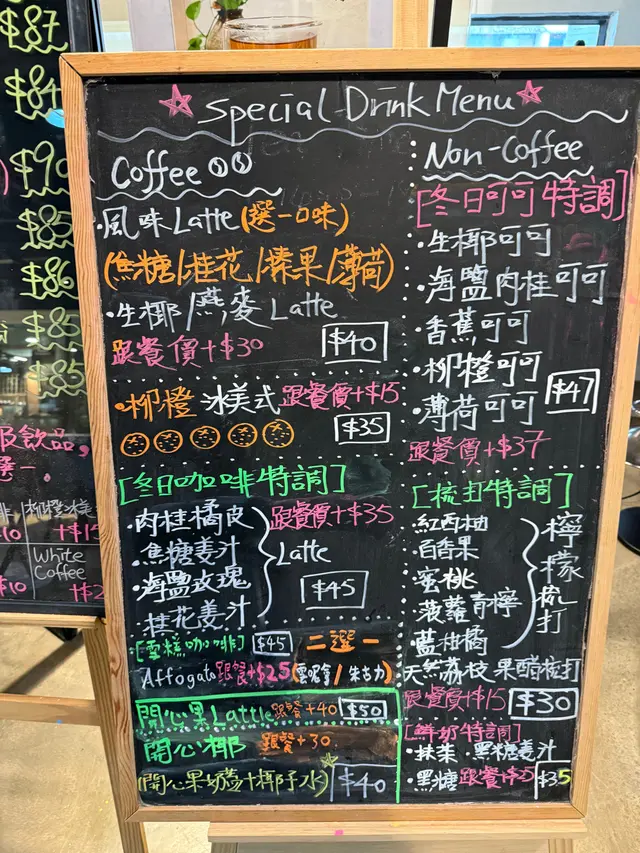 $87
$84
$90
$85
$86
$85
$85
及飲品,
選一.
柳橙美
+$15
White
Coffee
$10
+$2
Special Drink Menu
Coffee
·風味 Latte (選一口味)
(焦糖/桂花/榛果/薄荷)
·生椰/燕麥 Latte
跟餐價+$30
$40
·柳橙 冰美式 跟餐價+$15
$35
[冬日咖啡特調]
·肉桂橘皮
·焦糖姜汁
·海鹽玫瑰
·桂花姜汁
跟餐價+$35
Latte
$45
[雪糕咖啡] $45 二選一
Affogato 跟餐+$25 (雲呢拿/朱古力)
開心果Lattle 跟餐+40 $50
開心椰 跟餐+30
(開心果奶蓋+椰子水) $40
Non-Coffee
[冬日可可特調]
·生椰可可
·海鹽肉桂可可
·香蕉可可
·柳橙可可
·薄荷可可
$47
跟餐價+$37
[梳打特調]
·紅西柚
·百香果
·蜜桃
·菠蘿青檸
·藍柑橘
檸檬梳打
天然荔枝果醋梳打
跟餐價+$15 $30
[鮮奶特調]
·抹茶 ·黑糖姜汁
·黑糖 跟餐+$25 $35